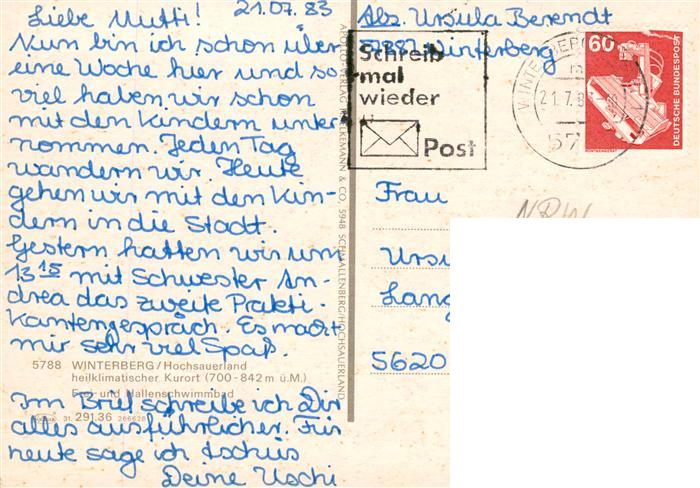 Liebe Mutti! 21.07.83
Nun bin ich schon über
eine Woche hier und so
viel haben wir schon
mit den Kindern unter
nommen. Jeden Tag
wandern wir. Heute
gehen wir mit den Kin-
dern in die Stadt.
Gestern hatten wir um
13 15 mit Schwester An-
drea das zweite Prakti-
kantengespräch. Es macht
mir sehr viel Spaß.
5788 WINTERBERG/Hochsauerland
heilklimatischer Kurort (700-842 m ü.M.)
Frei- und Hallenschwimmbad
31. 291.36 266628
Im Brief schreibe ich Dir
alles ausführlicher. Für
heute sage ich tschüs
Deine Uschi
& CO., 5948 SCHMALLENBERG/HOCHSAUERLAND
Abs. Ursula Berendt
5788 Winterberg
Schreib
mal
wieder
Post
WINTERBERG
21.7.8
57
60
DEUTSCHE BUNDESPOST
Frau
NRW
Ursu
Lang
5620